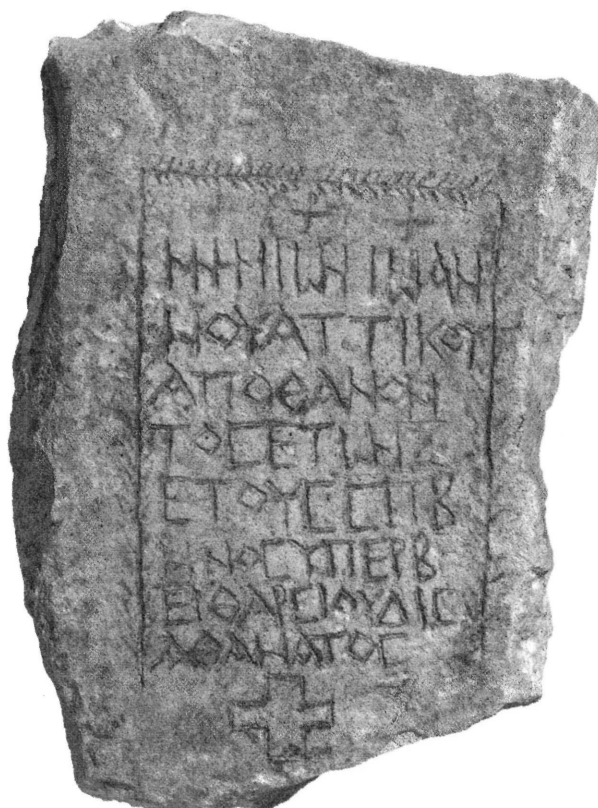 + +
ΜΝΗΜΙωΝ ΙωΑΝ
ΝΟΥ ΑΤΤΙΚΟΥ
ΑΠΟΘΑΝΟΝ
ΤΟϹ ΕΤωΝ Ζ
ΕΤΟΥϹ ϹΠΒ
ΜΗΝΟϹ ΥΠΕΡΒ
ΘΑΡϹΙ ΟΥΔΙϹ
ΑΘΑΝΑΤΟϹ